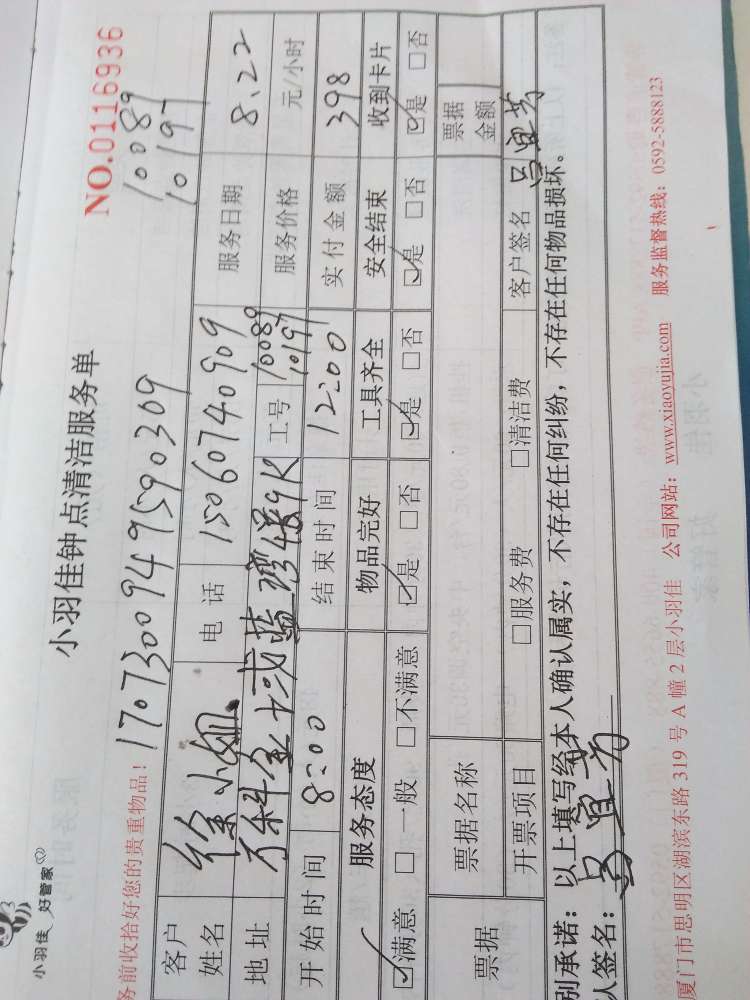 小羽佳 好管家
小羽佳钟点清洁服务单
NO.0116936
务前收拾好您的贵重物品! 1707300949590309
10089
10197
客户姓名 徐小姐 电话 15060740909 服务日期 8.22
地址 万科金域蓝湾 工号 10089 10197 服务价格 元/小时
开始时间 8:00 结束时间 12:00 实付金额 398
服务态度 物品完好 工具齐全 安全结束 收到卡片
☑满意 □一般 □不满意 ☑是 □否 ☑是 □否 ☑是 □否 ☑是 □否
票据 票据名称 票据金额
开票项目 □服务费 □清洁费 客户签名 吕宜芳
别承诺:以上填写经本人确认属实,不存在任何纠纷,不存在任何物品损坏。
人签名:吕宜芳
厦门市思明区湖滨东路 319 号 A 幢 2 层小羽佳 公司网站:www.xiaoyujia.com 服务监督热线:0592-5888123